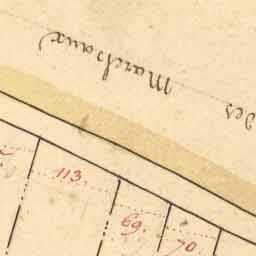 des Marchaux
113.
69.
70.